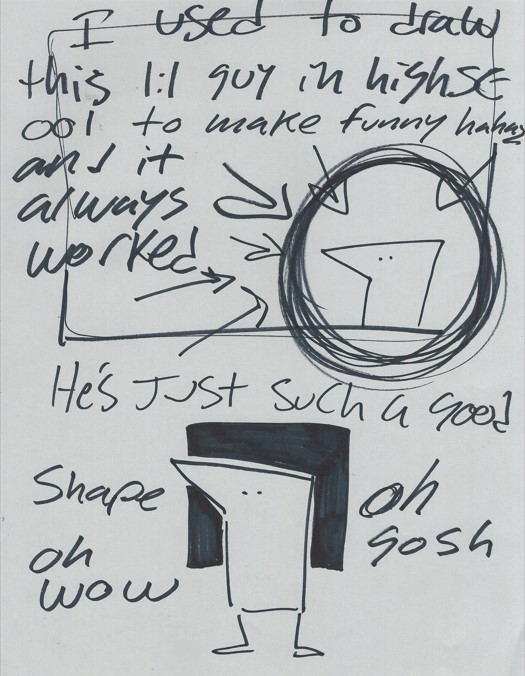 I used to draw
this 1:1 guy in highsc
ool to make funny hahas
and it
always
worked
He's Just such a good
Shape
oh
wow
oh
gosh